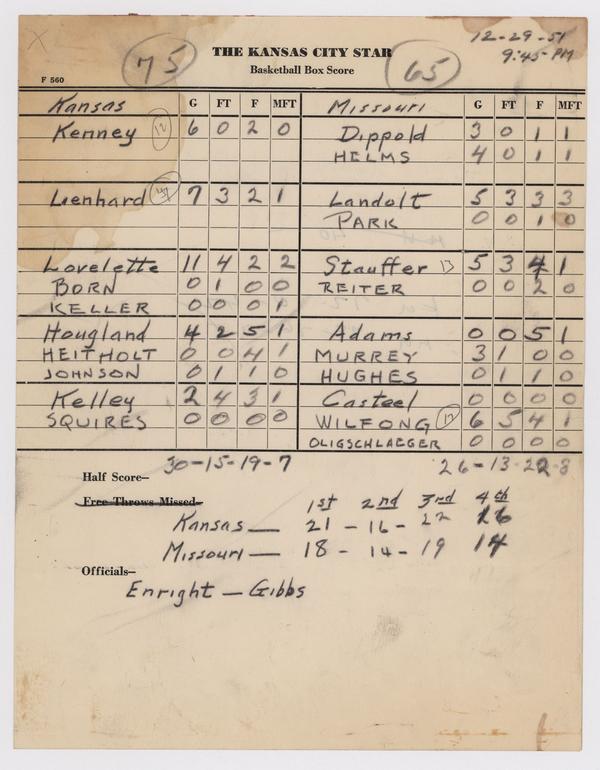 12-29-51
75 THE KANSAS CITY STAR 65 9:45-PM
Basketball Box Score
F 560
Kansas G FT F MFT Missouri G FT F MFT
Kenney 12 6 0 2 0 Dippold 3 0 1 1
HELMS 4 0 1 1
Lienhard 7 3 2 1 Landolt 5 3 3 3
PARK 0 0 1 0
Lovelette 11 4 2 2 Stauffer 13 5 3 4 1
BORN 0 1 0 0 REITER 0 0 2 0
KELLER 0 0 0 1
Hougland 4 2 5 1 Adams 0 0 5 1
HEITHOLT 0 0 4 1 MURREY 3 1 0 0
JOHNSON 0 1 1 0 HUGHES 0 1 1 0
Kelley 2 4 3 1 Casteel 0 0 0 0
SQUIRES 0 0 0 0 WILFONG 17 6 5 4 1
OLIGSCHLAEGER 0 0 0 0
30-15-19-7 26-13-22-8
Half Score—
Free Throws Missed— 1st 2nd 3rd 4th
Kansas — 21 - 16 - 22 16
Missouri — 18 - 14 - 19 14
Officials—
Enright — Gibbs